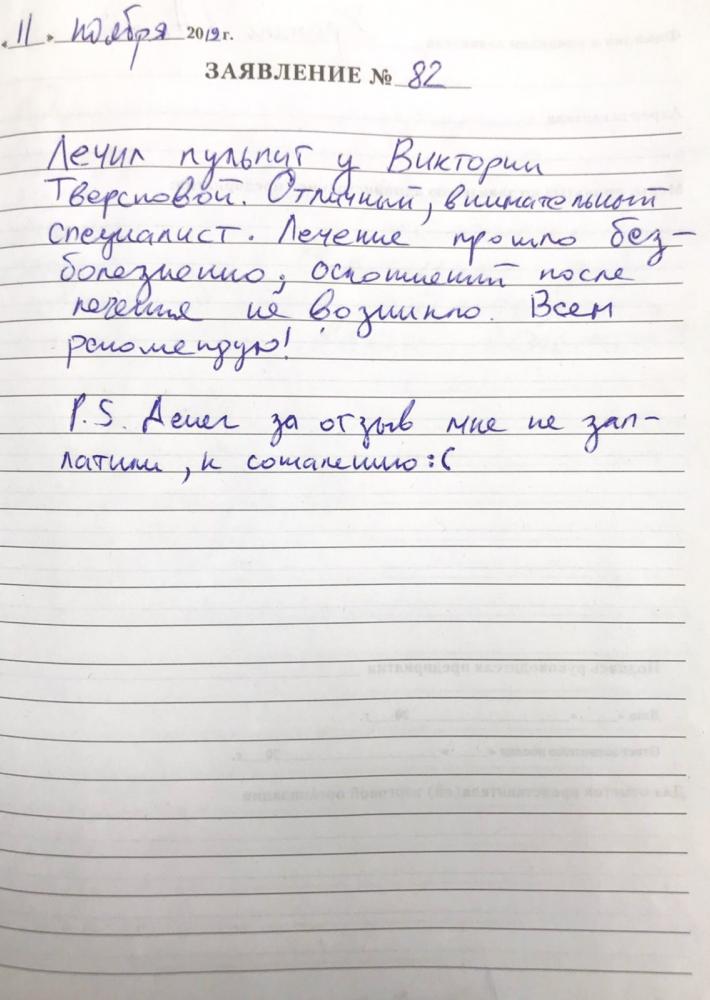 «11» ноября 2019 г.
ЗАЯВЛЕНИЕ № 82
Лечил пульпит у Виктории
Тверсковой. Отличный, внимательный
специалист. Лечение прошло без-
болезненно, осложнений после
лечения не возникло. Всем
рекомендую!
P.S. Денег за отзыв мне не зап-
латили, к сожалению :(
Подпись руководителя предприятия